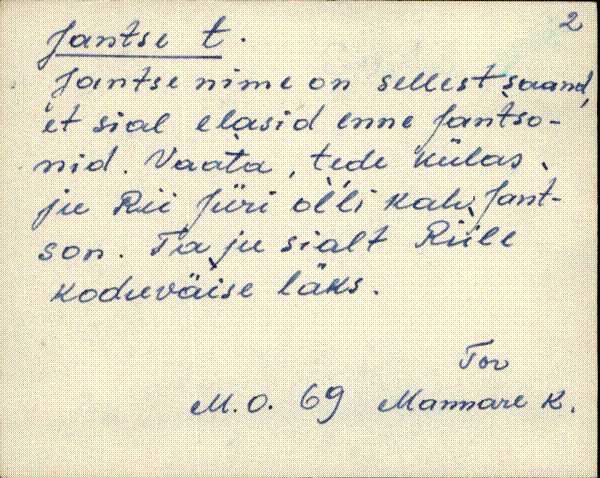 2
Jantse t.
Jantse nime on sellest saand,
et sial elasid enne Jantso-
nid. Vaata, tede külas
ju Rii Jüri ol'li kah Jant-
son. Ta ju sialt Riile
koduväise läks.
Tor
M.O. 69 Mannare K.